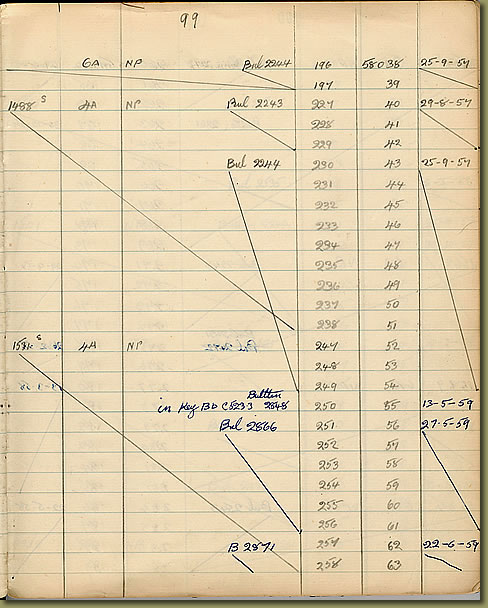 99
6A NP Bul 2244 196 58038 25-9-57
197 39
1488 S 4A NP Bul 2243 227 40 29-8-57
228 41
229 42
Bul 2244 230 43 25-9-57
231 44
232 45
233 46
234 47
235 48
236 49
237 50
238 51
S 4A NP 247 52
248 53
249 54
Bulletin
in Key BD C5233 2848 250 55 13-5-59
Bul 2866 251 56 27-5-59
252 57
253 58
254 59
255 60
256 61
B 2871 257 62 22-6-59
258 63